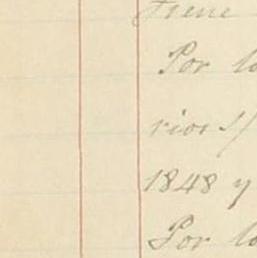 Tiene
Por lo
rios s/
1848 y
Por lo